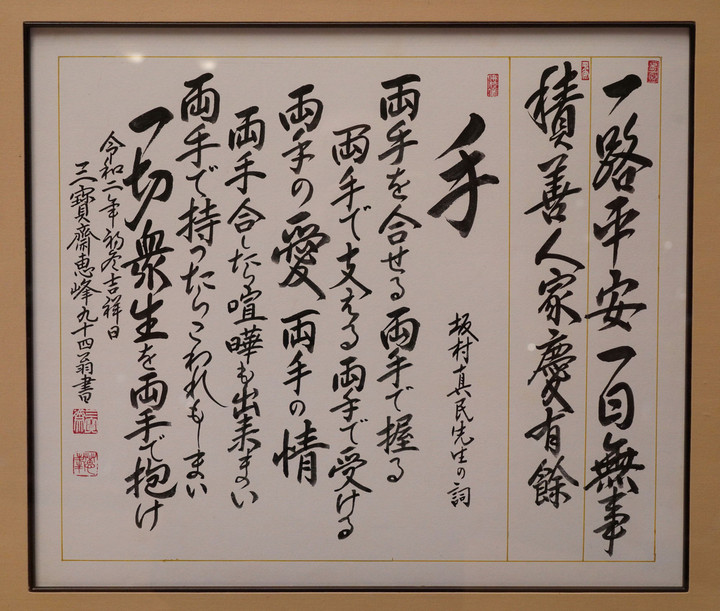 一路平安一日無事
積善人家慶有餘
手
坂村真民先生の詞
両手を合せる両手で握る
両手で支える両手で受ける
両手の愛両手の情
両手合したら喧嘩も出来まい
両手で持ったらこわれもしまい
一切衆生を両手で抱け
令和二年初冬吉祥日
三寶齋恵峰九十四翁書